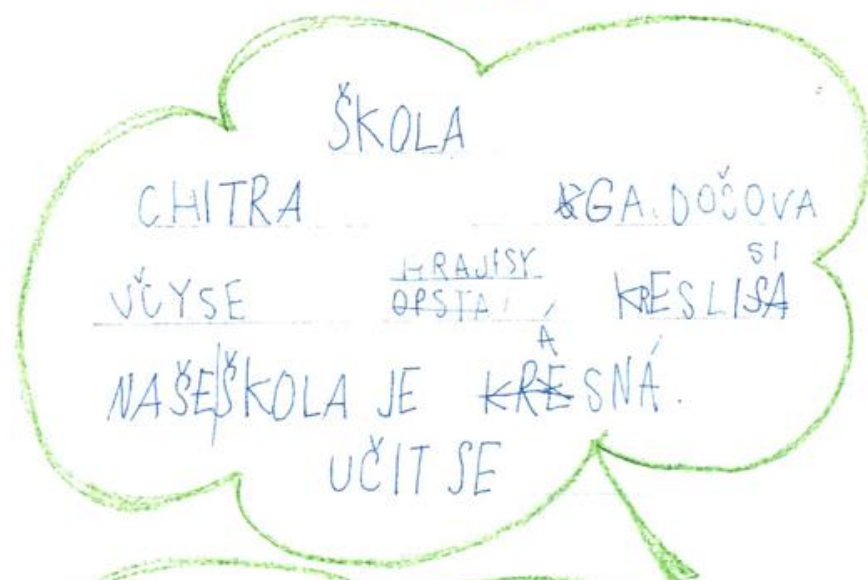 ŠKOLA
CHITRA GA.DOŠOVA
SI
VČYSE HRAJISY KRESLIŠA
OPSTA
Á
NAŠE ŠKOLA JE KRĚSNÁ.
UČIT SE